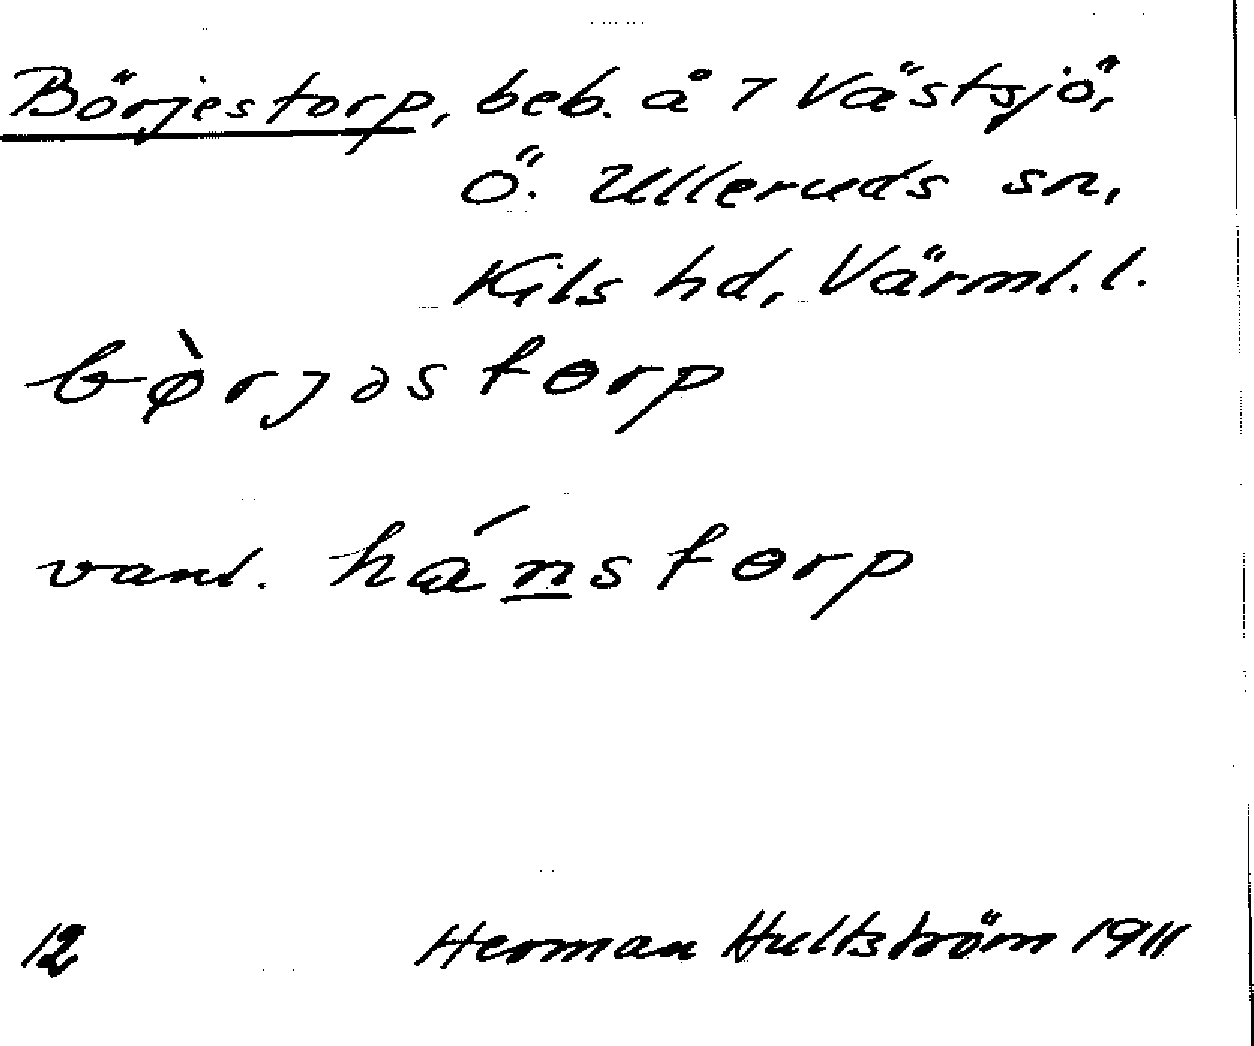 Börjestorp, beb. å 7 Västsjö,
Ö. Ulleruds sn,
Kils hd, Värml. l.
bø̀rjəstɵrp
vanl. hánstɵrp
12 Herman Hultström 1911